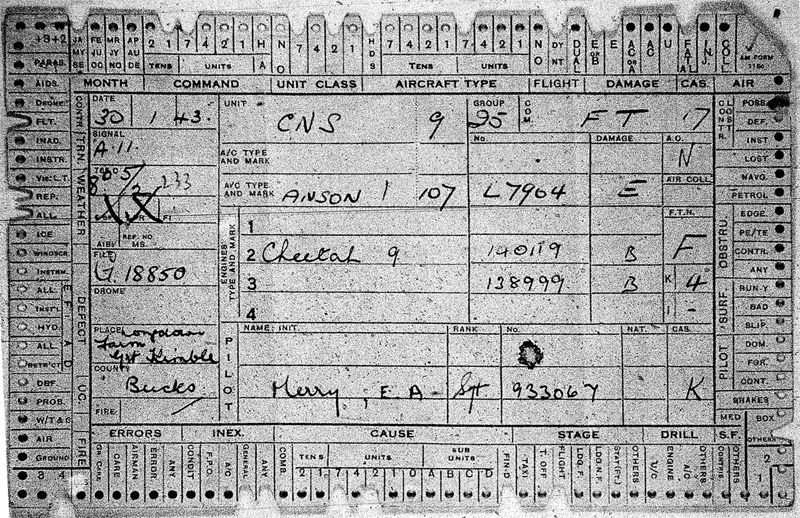 +3+2 JA FE MR AP 2 1 7 4 2 1 H NO 7 4 2 1 HDS 7 4 2 1 7 4 2 1 NO DUAL E OR B E AC OR A AC U FATAL INJ. COLL AM FORM 1180
MY JU JY AU
PARAS. SE OC NO DE TENS UNITS A TENS UNITS
AIDS. MONTH COMMAND UNIT CLASS AIRCRAFT TYPE FLIGHT DAMAGE CAS. AIR
DATE UNIT GROUP COM. POSS.
FLT. 30 1 43 CNS 9 25 FT 17 DEF.
INAD. SIGNAL A/C TYPE AND MARK No. DAMAGE A.O. INST
INSTR. A.11. N LOST
VIS: L.T. 233 A/C TYPE AND MARK ANSON 1 107 L7904 E AIR COLL NAVG.
REP. PETROL
ALL. 1 F.T.N. EDGE.
ICE REF. NO. MS. 2 Cheetah 9 140119 B F PE/TE
WINDSCR. FILE ENGINES TYPE AND MARK CONTR.
INSTRN. G.18850 3 138999 B K 4 ANY
ALL. DROME RUN-Y
INST'L 4 1 - BAD
HYD. PLACE Longdown NAME: INIT. RANK No. NAT. CAS. SLIP.
ALL Farm DOM.
Gt Kimble PILOT FGR.
DEF. COUNTY CONT.
PROB. Bucks Merry, E A Sgt 933067 K BRAKES
W/T&C FIRE: MED BOX
AIR ERRORS INEX. CAUSE STAGE DRILL S.F. OTHERS
GROUND CARE AIRMAN ERROR ANY CONDUIT F.P.O. A/C GENERAL ANY COMB. TENS UNITS SUB UNITS FIN-D TAXI T. OFF FLIGHT LDG. F. LDG. N.F. STAT(FT.) OTHERS U/C ENGINE A/C OTHERS CONTRS OTHERS 2
3 4 2 1 7 4 2 1 0 A B C D 1
CONTN. TRN. WEATHER DEFECT UC. FIRE
OBSTRU. SURF. PILOT